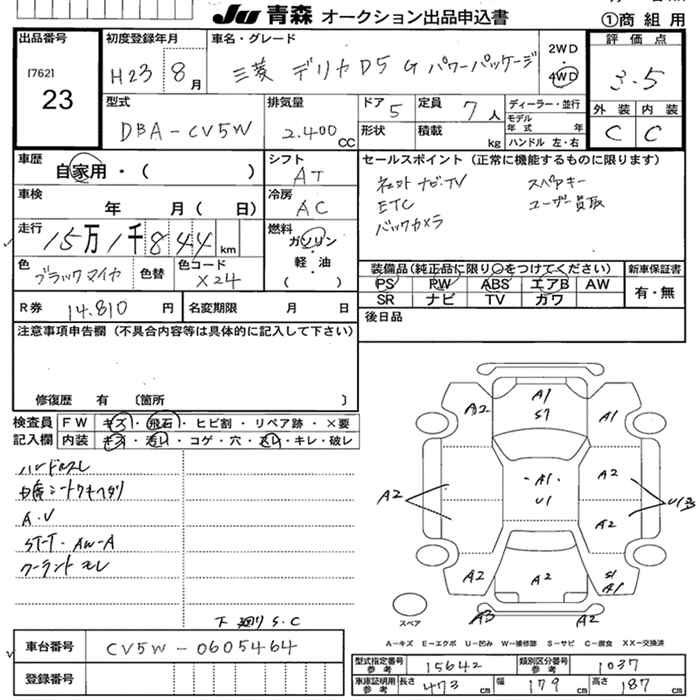 JU 青森 オークション出品申込書
①商組用
出品番号
[762]
23
初度登録年月
H23 8月
車名・グレード
三菱 デリカD5 G パワーパッケージ
2WD
4WD
評価点
3.5
外装 内装
C C
型式
DBA-CV5W
排気量
2.400 CC
ドア 5
定員 7人
形状
積載 kg
ディーラー・並行
モデル年式 年
ハンドル 左・右
車歴
自家用・( )
シフト
AT
セールスポイント(正常に機能するものに限ります)
ナビ・TV スペアキー
ETC ユーザー買取
バックカメラ
車検
年 月( 日)
冷房
AC
走行
15万1千844 km
燃料
ガソリン
軽・油
( )
色
ブラックマイカ
色替
色コード
X24
装備品(純正品に限り○をつけてください)
PS PW ABS エアB AW
SR ナビ TV カワ
新車保証書
有・無
R券 14.810 円
名変期限 月 日
後日品
注意事項申告欄(不具合内容等は具体的に記入して下さい)
修復歴 有 〔箇所 〕
検査員記入欄
FW キズ・飛石・ヒビ割・リペア跡・×要
内装 キズ・汚れ・コゲ・穴・スレ・キレ・破レ
ハンドルスレ
A.V
ST-T・AW-A
クーラントモレ
下廻りS.C
A2 A1 S1 A1
A2 A1 U1 A2 A2
A2 A2 S1 A1
A3 A2
スペア
A-キズ E-エクボ U-凹み W-補修跡 S-サビ C-腐食 XX-交換済
車台番号
CV5W-0605464
登録番号
型式指定番号 参考 15642
類別区分番号 参考 1037
車庫証明用 参考 長さ 473 cm 幅 179 cm 高さ 187 cm